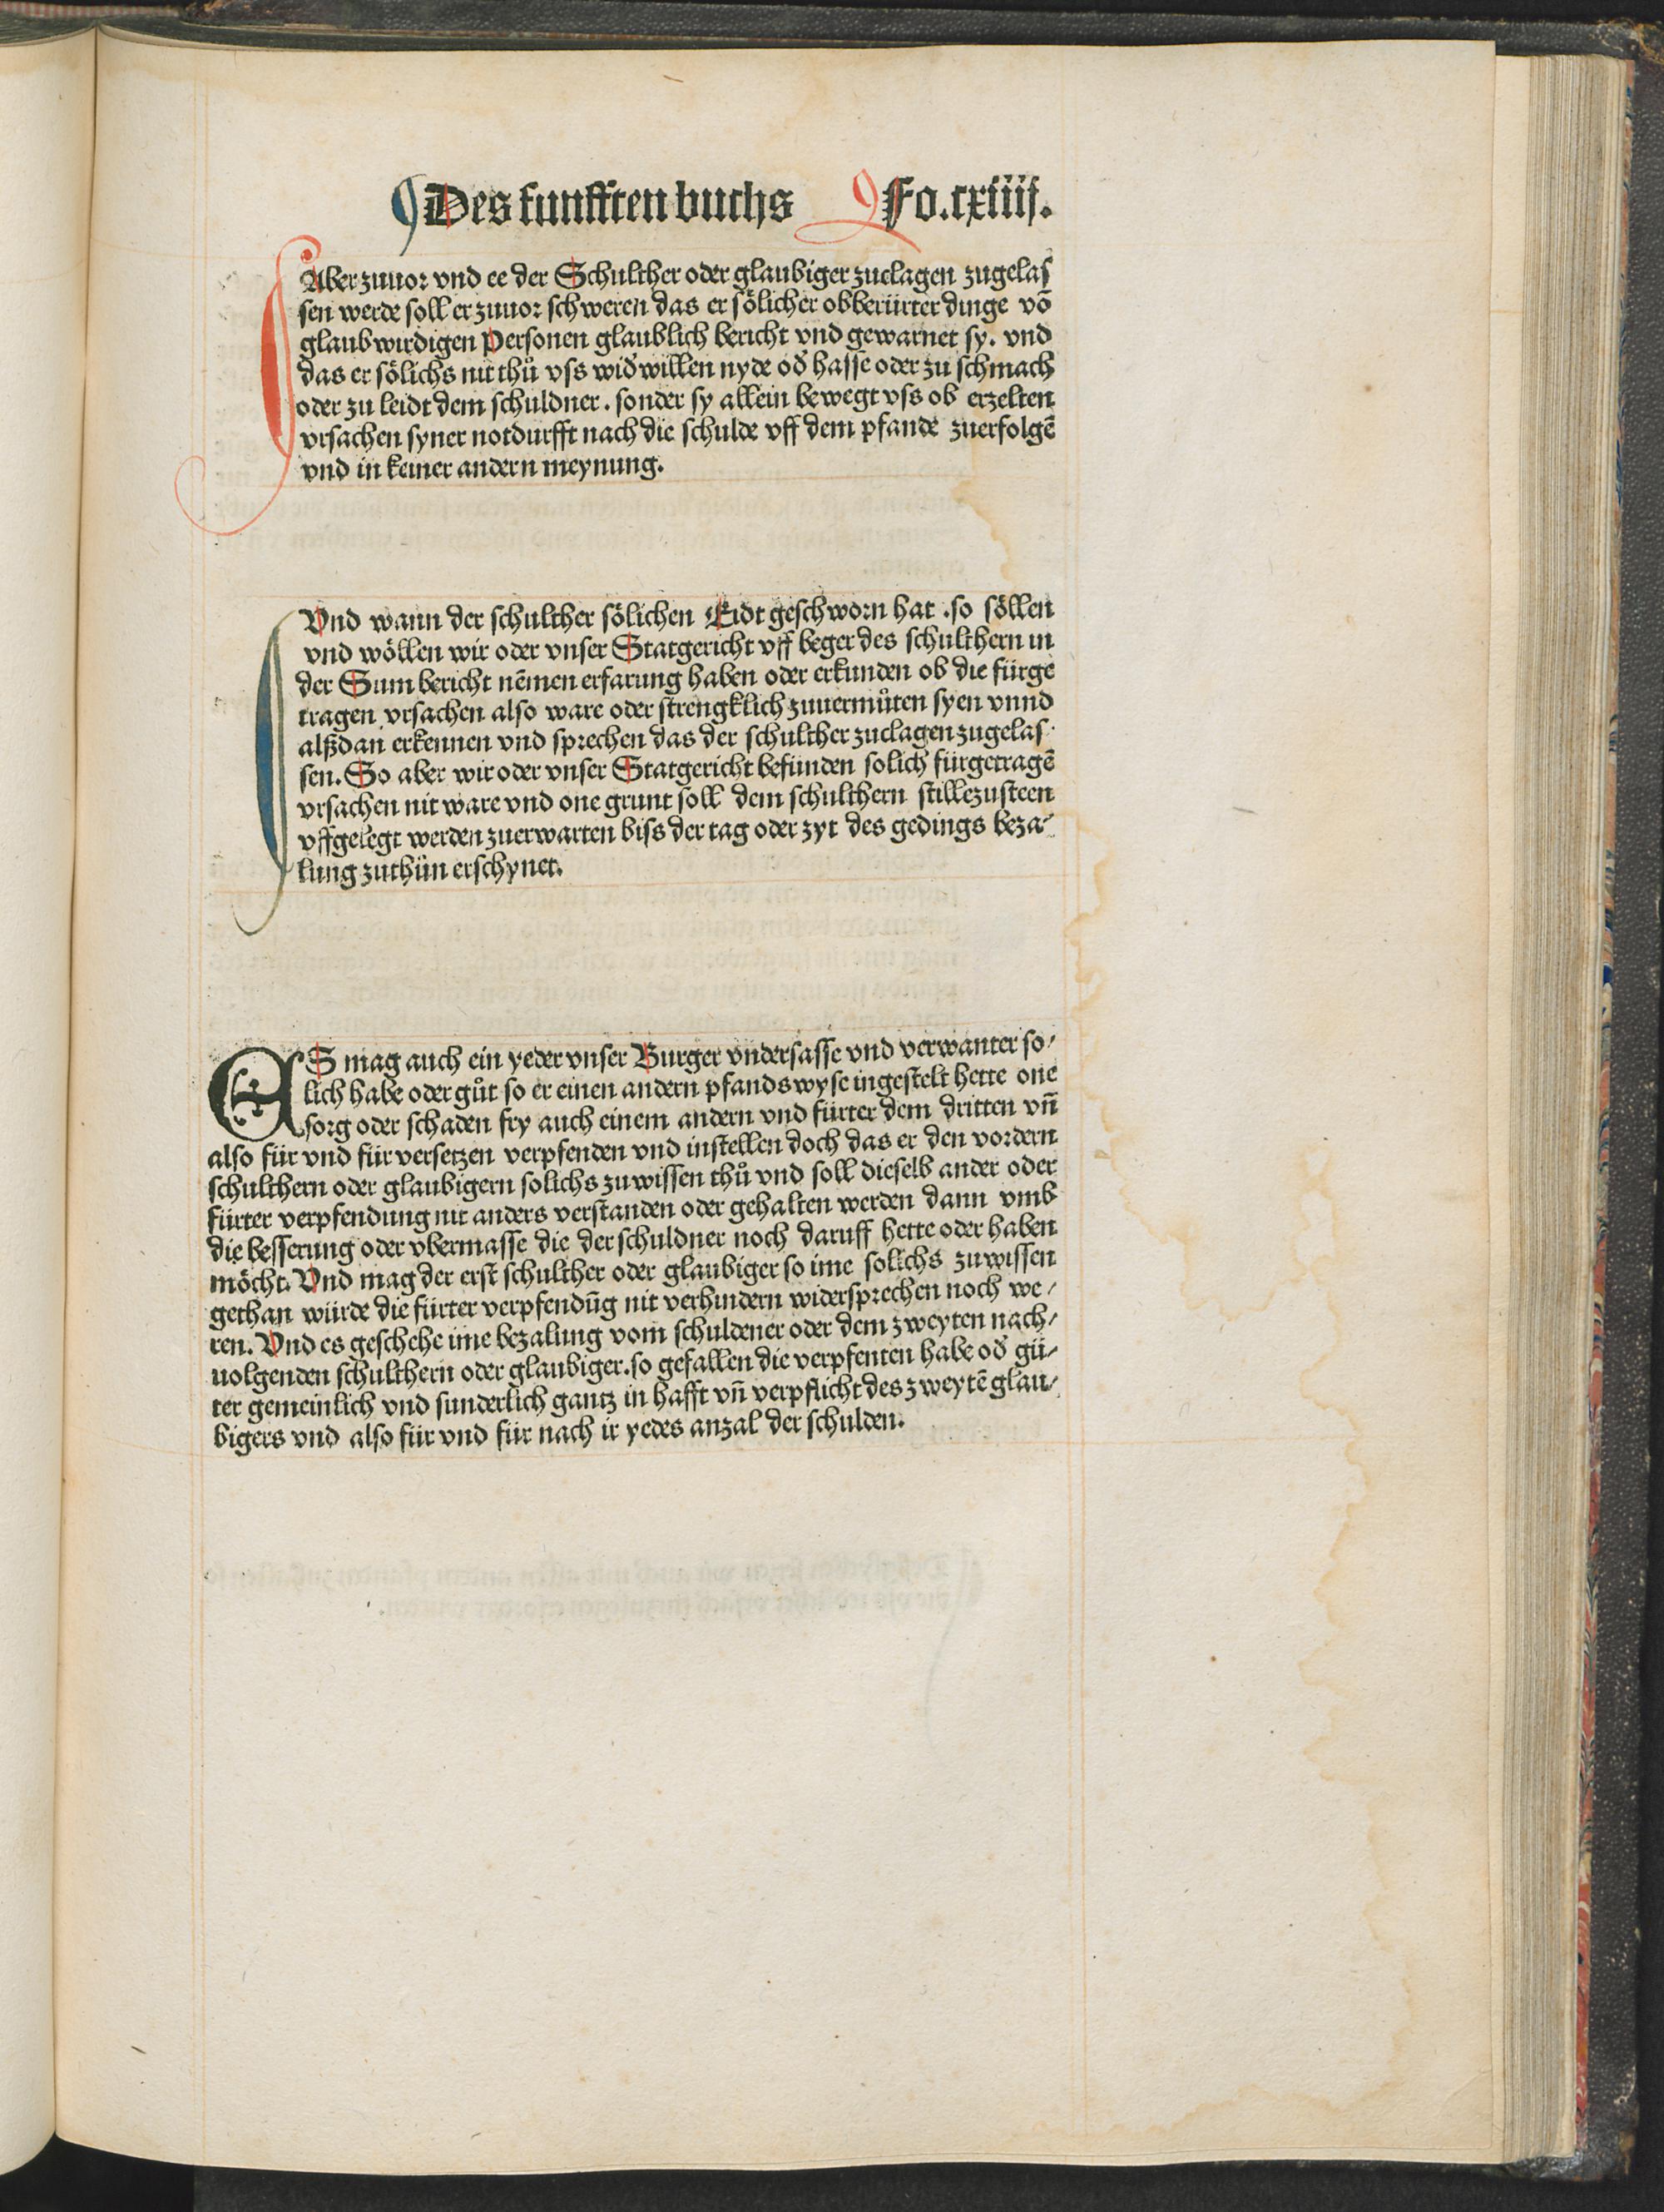 Des funfften buchs Fo.cxiiij.
Aber zuuor vnd ee der Schulther oder glaubiger zuclagen zugelas
sen werde soll er zuuor schweren das er sölicher obberürter dinge vō
glaubwirdigen Personen glaublich bericht vnd gewarnet sy. vnd
das er sölichs nit thů vss wid̄willen nyde od̄ hasse oder zu schmach
oder zu leidt dem schuldner. sonder sy allein bewegt vss ob erzelten
vrsachen syner notdurfft nach die schulde vff dem pfande zuerfolgē
vnd in keiner andern meynung.
Vnd wann der schulther sölichen Eidt geschworn hat .so söllen
vnd wöllen wir oder vnser Statgericht vff beger des schulthern in
der Sum bericht nēmen erfarung haben oder erkunden ob die fürge
tragen vrsachen also ware oder strengklich zuuermůten syen vnnd
alßdan erkennen vnd sprechen das der schulther zuclagen zugelas
sen. So aber wir oder vnser Statgericht befunden solich fürgetragē
vrsachen nit ware vnd one grunt soll dem schulthern stillezusteen
vffgelegt werden zuerwarten biss der tag oder zyt des gedings beza⸗
lung zuthün erschynet.
ES mag auch ein yeder vnser Burger vndersasse vnd verwanter so⸗
lich habe oder gůt so er einen andern pfandswyse ingestelt hette one
sorg oder schaden fry auch einem andern vnd fürter dem dritten vn̄
also für vnd für versetzen verpfenden vnd instellen doch das er den vordern
schulthern oder glaubigern solichs zuwissen thů vnd soll dieselb ander oder
fürter verpfendung nit anders verstanden oder gehalten werden dann vmb
die besserung oder vbermasse die der schuldner noch daruff hette oder haben
möcht. Vnd mag der erst schulther oder glaubiger so ime solichs zuwissen
gethan würde die fürter verpfendūg nit verhindern widersprechen noch we⸗
ren. Vnd es geschehe ime bezalung vom schuldener oder dem zweyten nach⸗
uolgenden schulthern oder glaubiger. so gefallen die verpfenten habe od̄ gü⸗
ter gemeinlich vnd sunderlich gantz in hafft vn̄ verpflicht des zweytē glau⸗
bigers vnd also für vnd für nach ir yedes anzal der schulden.